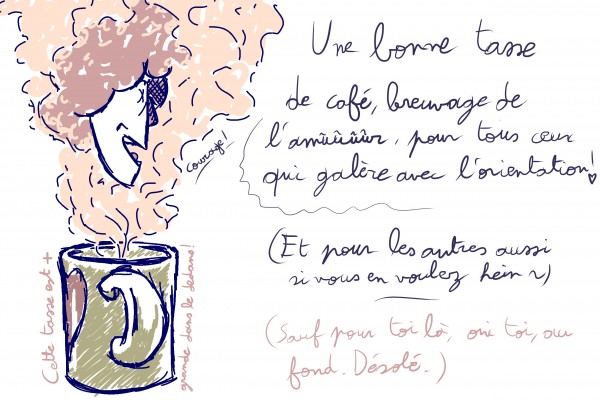 Une bonne tasse
de café, breuvage de
l'amûûûûûr, pour tous ceux
qui galère avec l'orientation!
courage!
(Et pour les autres aussi
si vous en voulez hein ~)
(Sauf pour toi là, oui toi, au
fond. Désolé.)
Cette tasse est +
grande dans le dedans!